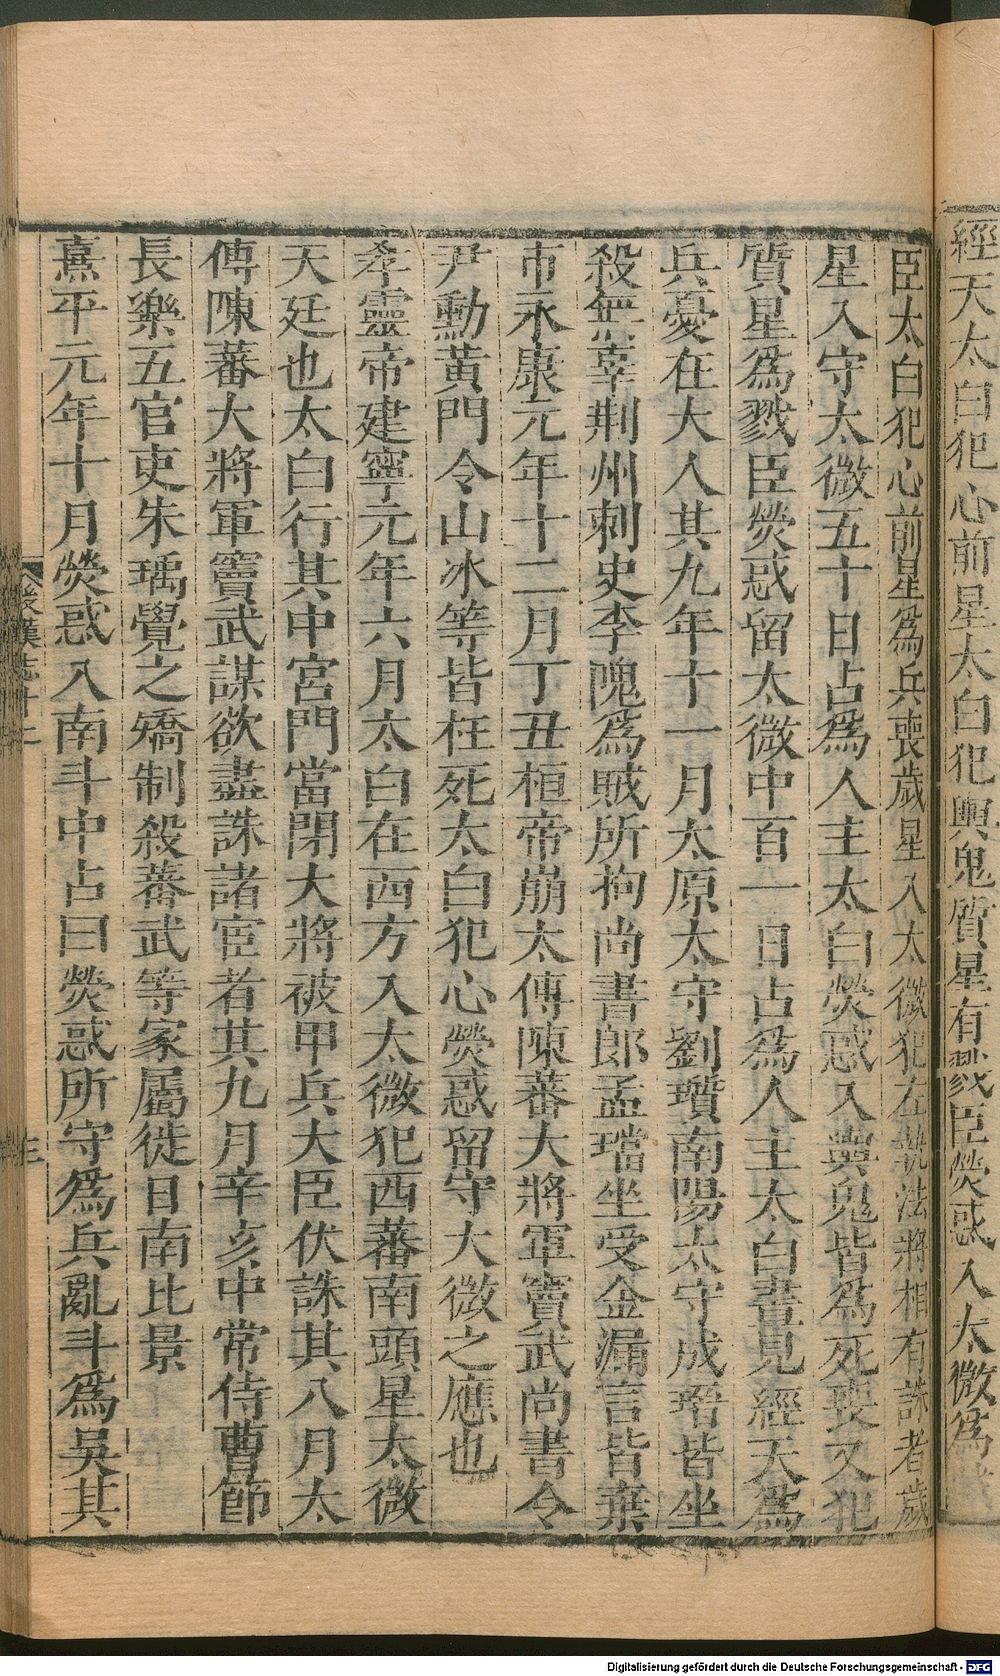 經天太白犯心前星太白犯輿鬼質星有戮臣熒惑入太微爲
臣太白犯心前星爲兵喪歲星入太微犯左執法將相有誅者歲
星入守太微五十日占爲人主太白熒惑入輿鬼皆爲死喪又犯
質星爲戮臣熒惑留太微中百一日占爲人主太白晝見經天爲
兵憂在大人其九年十一月太原太守劉瓆南陽太守成瑨皆坐
殺無辜荆州刺史李隗爲賊所拘尚書郎孟璫坐受金漏言皆棄
市永康元年十二月丁丑桓帝崩太傅陳蕃大將軍竇武尚書令
尹勳黃門令山冰等皆枉死太白犯心熒惑留守大微之應也
孝靈帝建寧元年六月太白在西方入太微犯西蕃南頭星太微
天廷也太白行其中宮門當閉大將被甲兵大臣伏誅其八月太
傅陳蕃大將軍竇武謀欲盡誅諸宦者其九月辛亥中常侍曹節
長樂五官吏朱瑀覺之矯制殺蕃武等家屬徙日南比景
熹平元年十月熒惑入南斗中占曰熒惑所守爲兵亂斗爲吳其
後漢志十二
Digitalisierung gefördert durch die Deutsche Forschungsgemeinschaft - DFG